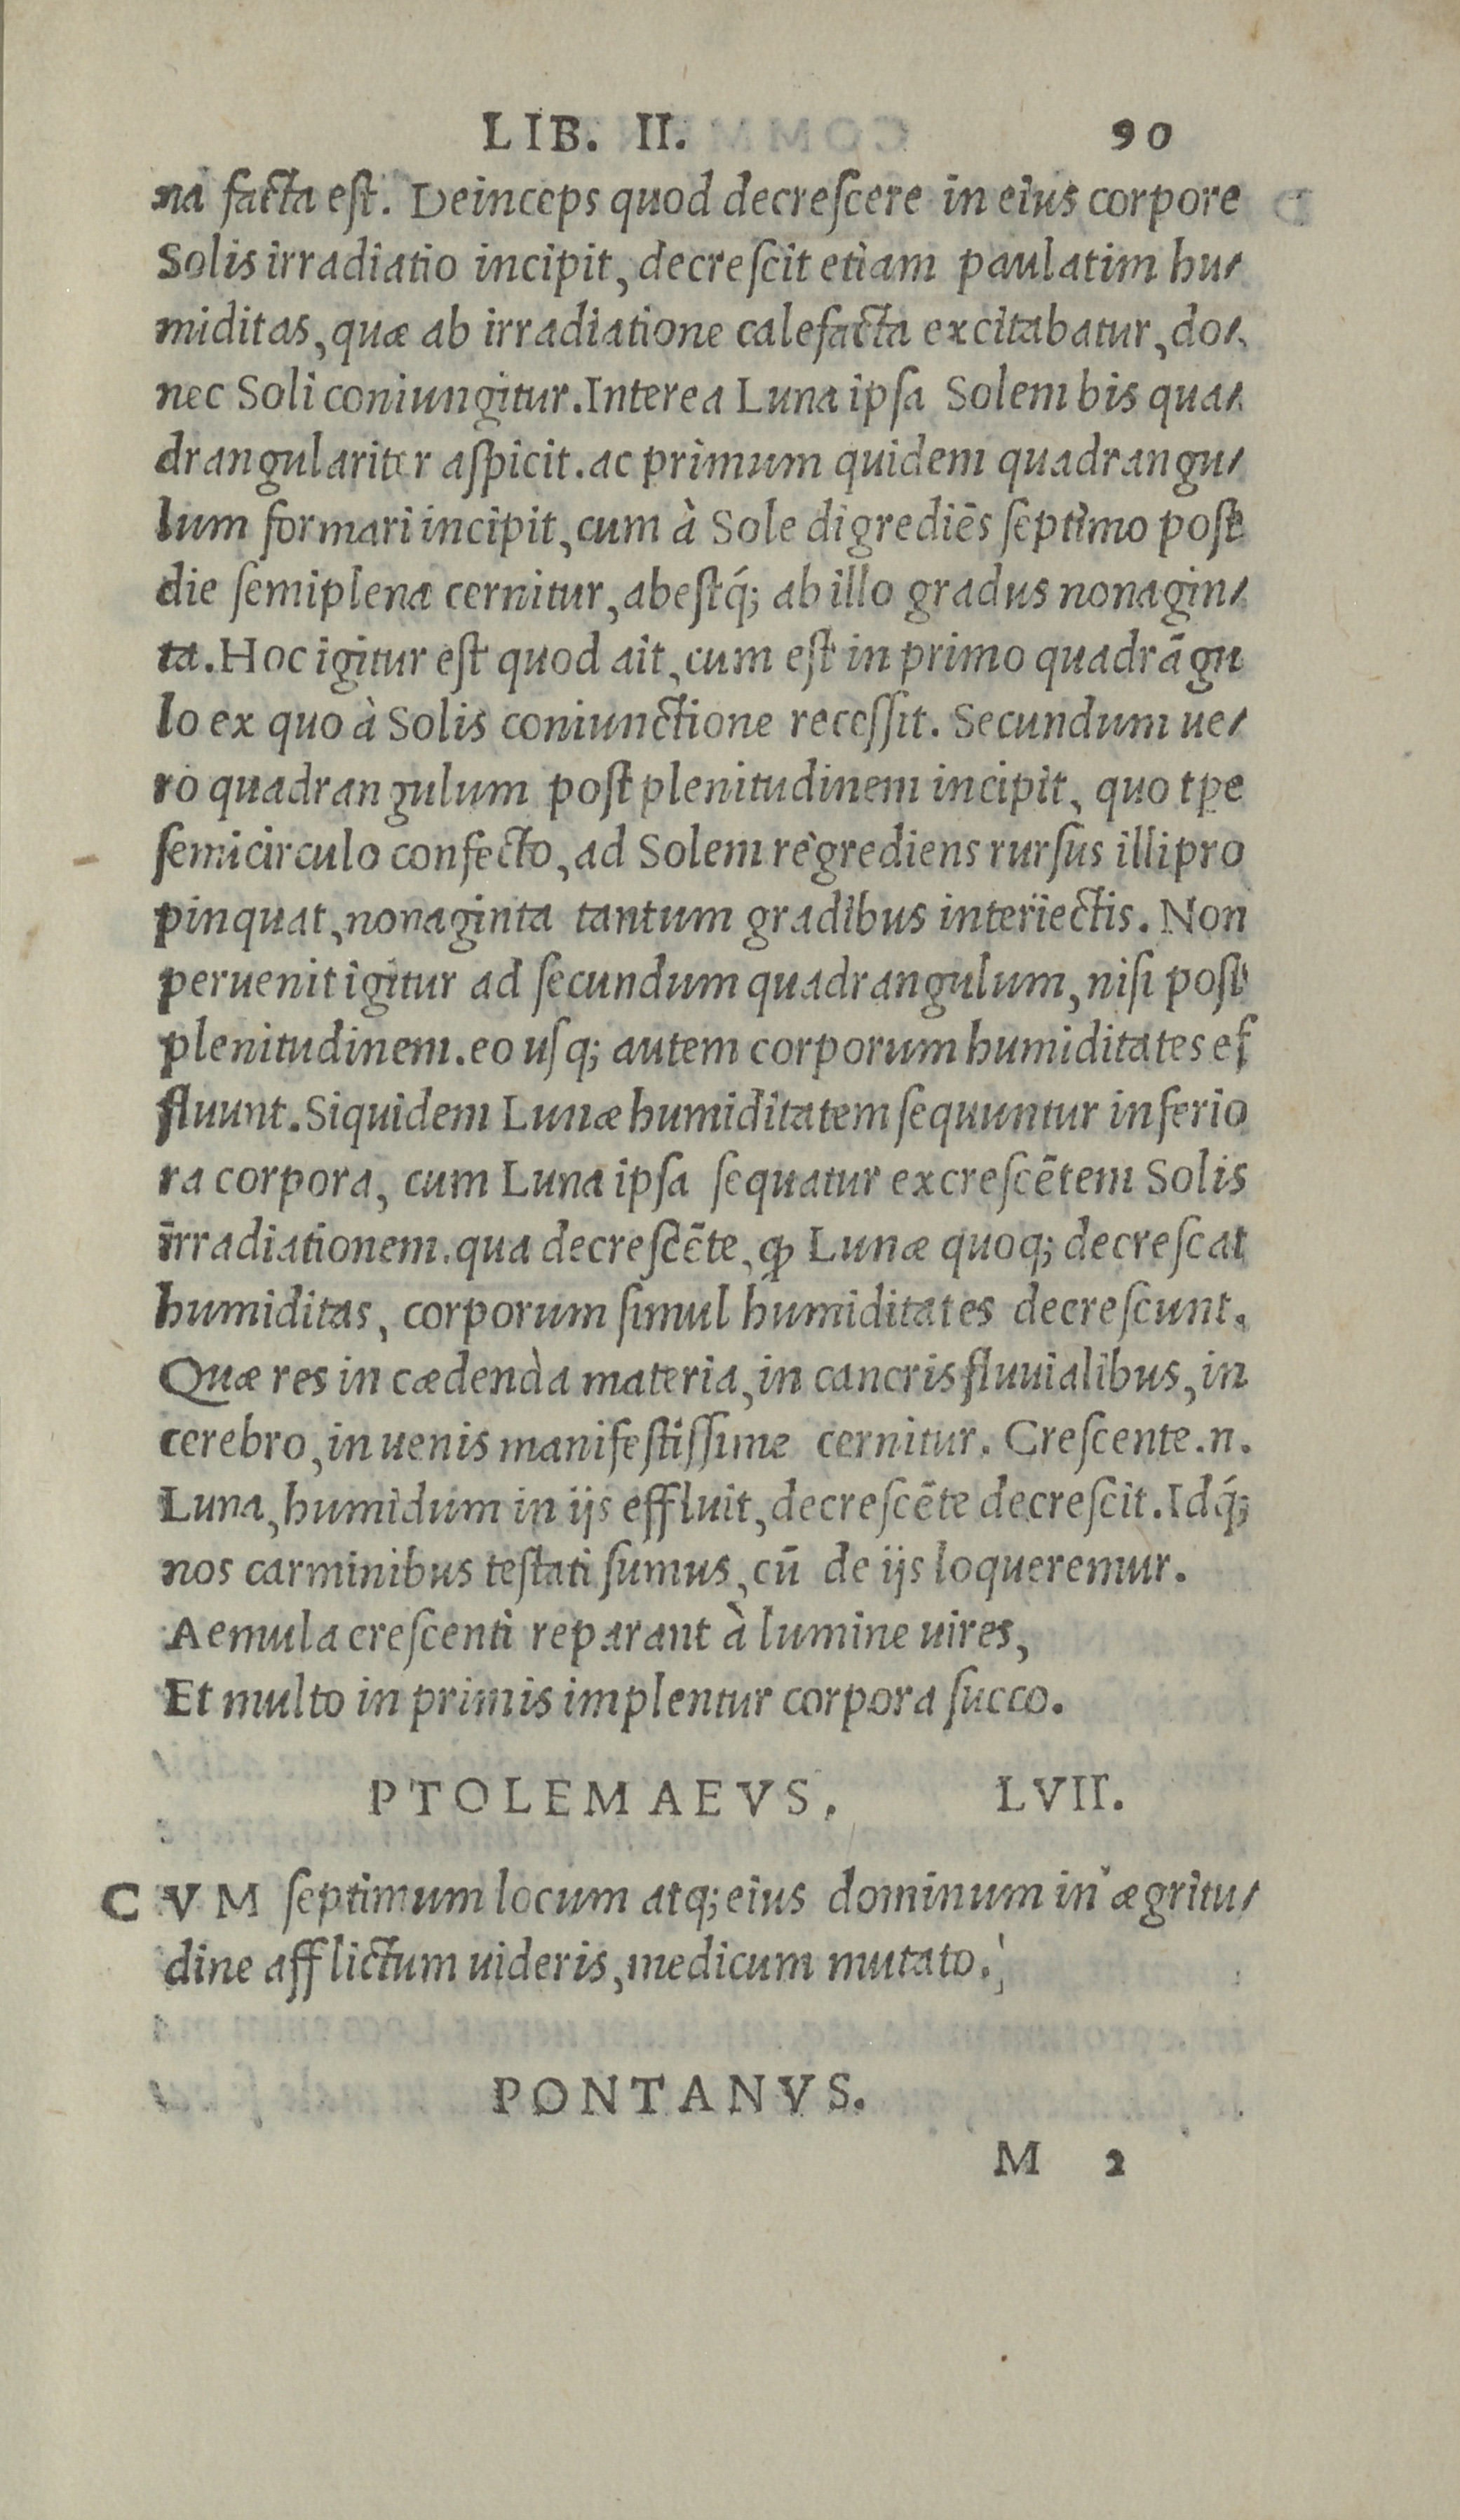 LIB. II. 90
na facta eſt. Deinceps quod decreſcere in eius corpore
Solis irradiatio incipit, decreſcit etiam paulatim hu-
miditas, quæ ab irradiatione calefacta excitabatur, do-
nec Soli coniungitur. Interea Luna ipſa Solem bis qua-
drangulariter aſpicit. ac primum quidem quadrangu-
lum formari incipit, cum à Sole digrediēs ſeptimo poſt
die ſemiplena cernitur, abeſtq́; ab illo gradus nonagin-
ta. Hoc igitur eſt quod ait, cum eſt in primo quadrāgu
lo ex quo à Solis coniunctione receſſit. Secundum ue-
ro quadrangulum poſt plenitudinem incipit, quo tpe
ſemicirculo confecto, ad Solem regrediens rurſus illi pro
pinquat, nonaginta tantum gradibus interiectis. Non
peruenit igitur ad ſecundum quadrangulum, niſi poſt
plenitudinem. eo uſq; autem corporum humiditates ef
fluunt. Siquidem Lunæ humiditatem ſequuntur inferio
ra corpora, cum Luna ipſa ſequatur excreſcētem Solis
irradiationem. qua decreſcēte, ꝙ Lunæ quoq; decreſcat
humiditas, corporum ſimul humiditates decreſcunt.
Quæ res in cædenda materia, in cancris fluuialibus, in
cerebro, in uenis manifeſtiſſime cernitur. Creſcente .n.
Luna, humidum in ijs effluit, decreſcēte decreſcit. Idq́;
nos carminibus teſtati ſumus, cū de ijs loqueremur.
Aemula creſcenti reparant à lumine uires,
Et multo in primis implentur corpora ſucco.
PTOLEMAEVS. LVII.
CVM ſeptimum locum atq; eius dominum in ægritu-
dine afflictum uideris, medicum mutato.
PONTANVS.
M 2